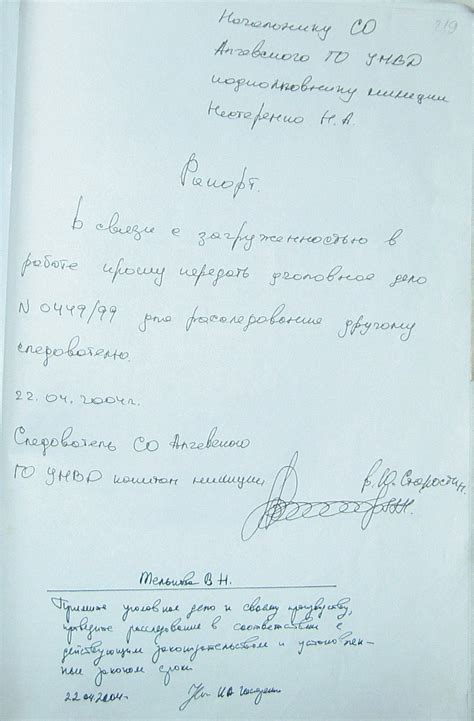 Начальнику СО 219
Алчевского ГО УМВД
подполковнику милиции
Нестеренко Н.А.
Рапорт.
В связи с загруженностью в
работе прошу передать уголовное дело
N 0449/99 для расследование другому
следователю.
22.04.2004г.
Следователь СО Алчевского
ГО УМВД капитан милиции В.Ю. Старостин.
В.Н.
Примите уголовное дело к своему производству,
проведите расследование в соответствии с
действующим законодательством и установлен-
ные законом сроки
22.04.2004г.